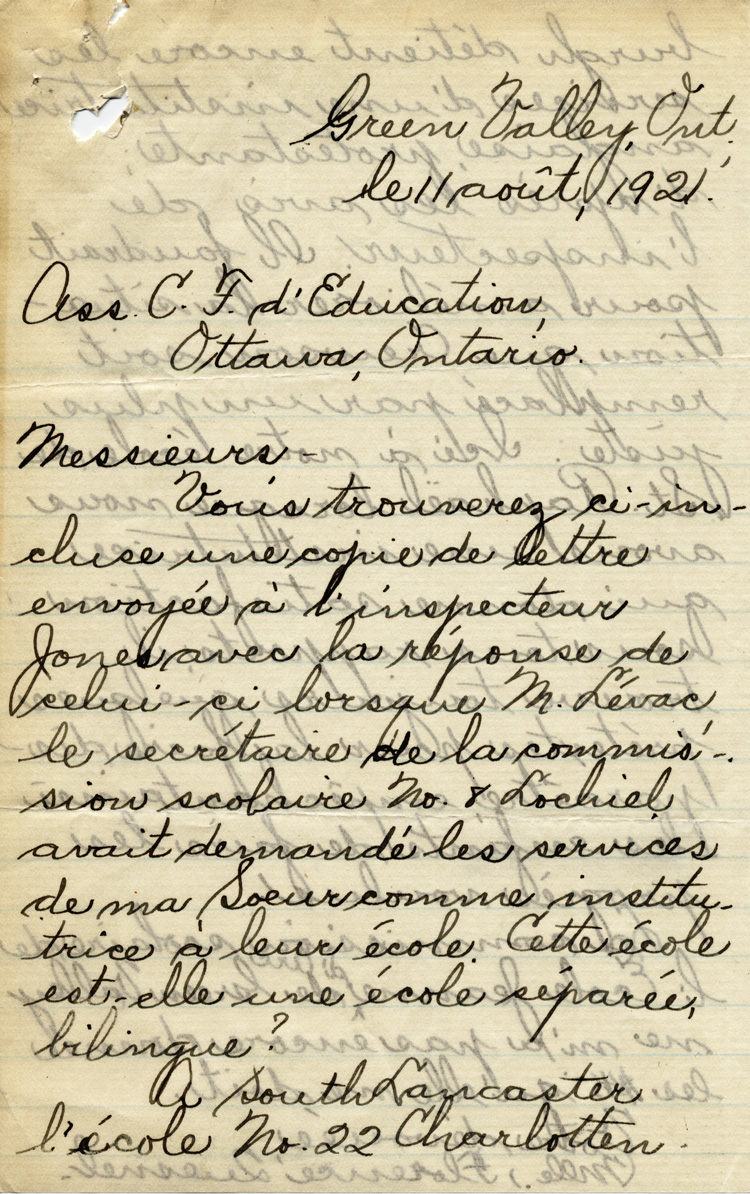 Green Valley, Ont.,
le 11 août, 1921.
Ass. C. F. d'Education,
Ottawa, Ontario.
Messieurs -
Vous trouverez ci-in-
cluse une copie de lettre
envoyée à l'inspecteur
Jones avec la réponse de
celui-ci lorsque M. Lévac,
le secrétaire de la commis-
sion scolaire No. 8 Lochiel
avait demandé les services
de ma Soeur comme institu-
trice à leur école. Cette école
est-elle une école séparée,
bilingue?
A South Lancaster
l'école No. 22 Charlotten-